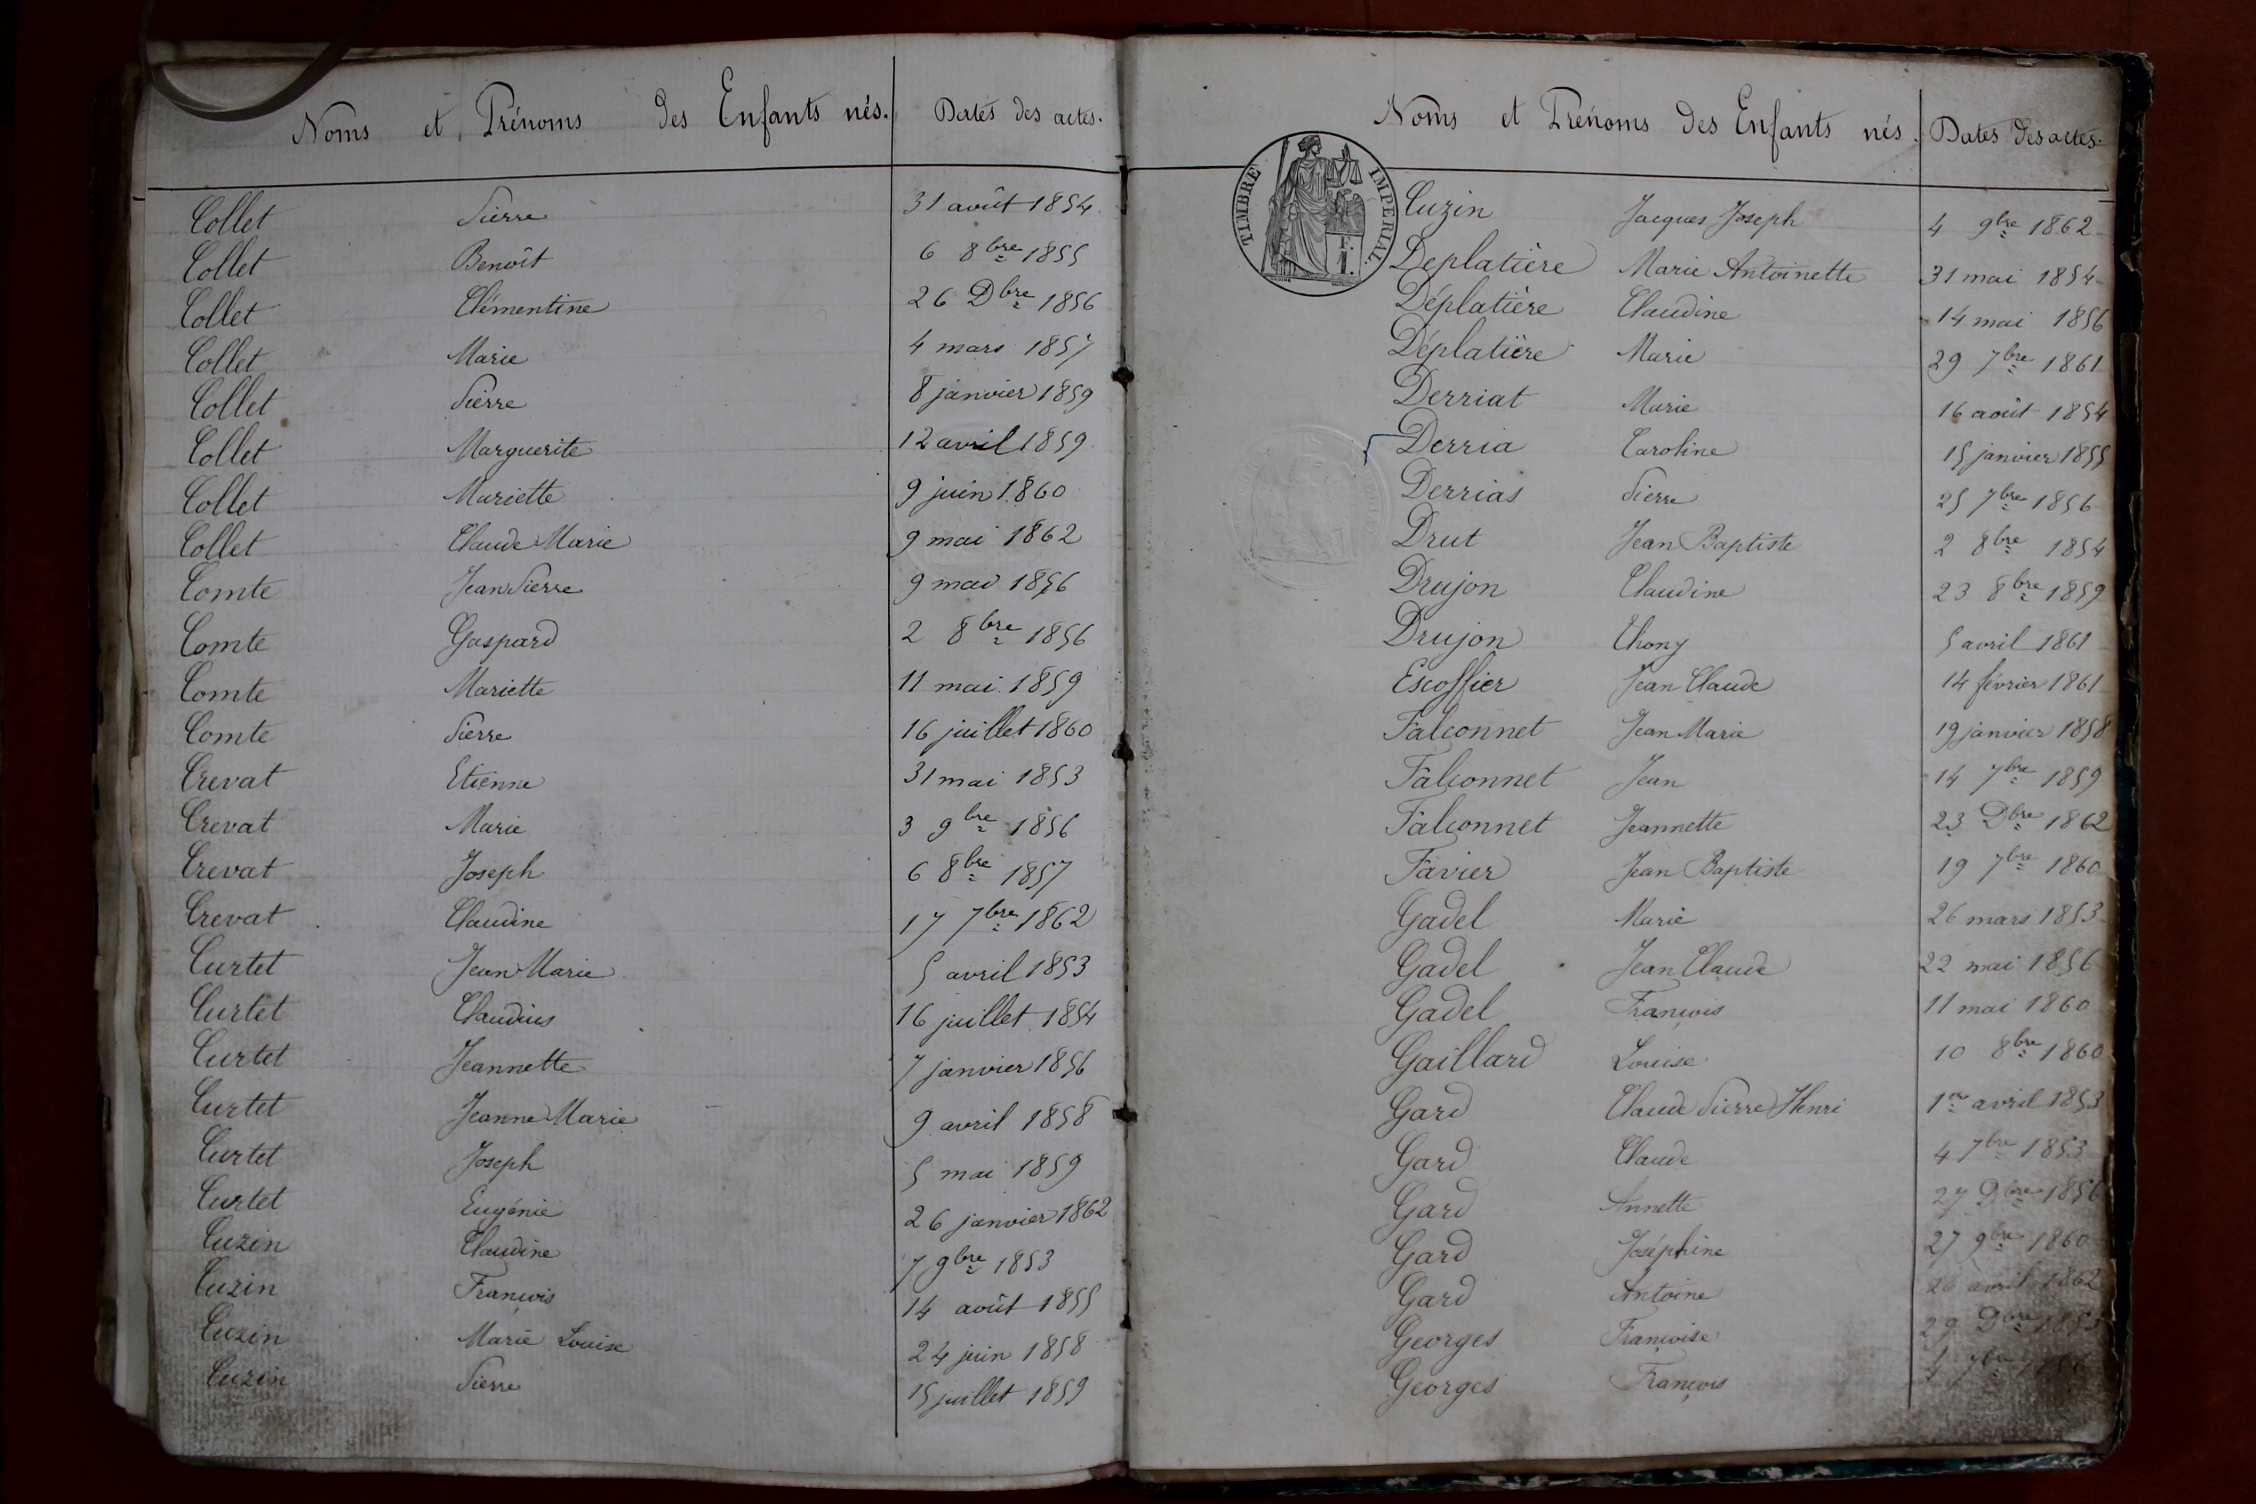 Noms et Prénoms des Enfants nés. Dates des actes.
Collet Pierre 31 août 1854
Collet Benoît 6 8bre 1855
Collet Clémentine 26 Dbre 1856
Collet Marie 4 mars 1857
Collet Pierre 8 janvier 1859
Collet Marguerite 12 avril 1859
Collet Mariette 9 juin 1860
Collet Claude Marie 9 mai 1862
Comte Jean Pierre 9 mai 1856
Comte Gaspard 2 8bre 1856
Comte Mariette 11 mai 1859
Comte Pierre 16 juillet 1860
Crevat Etienne 31 mai 1853
Crevat Marie 3 9bre 1856
Crevat Joseph 6 8bre 1857
Crevat Claudine 17 7bre 1862
Curtet Jean Marie 5 avril 1853
Curtet Claudius 16 juillet 1854
Curtet Jeannette 7 janvier 1856
Curtet Jeanne Marie 9 avril 1858
Curtet Joseph 5 mai 1859
Curtet Eugénie 26 janvier 1862
Cuzin Claudine 7 9bre 1853
Cuzin François 14 août 1855
Cuzin Marie Louise 24 juin 1858
Cuzin Pierre 15 juillet 1859
Noms et Prénoms des Enfants nés. Dates des actes.
TIMBRE IMPERIAL
F.
1.
Cuzin Jacques Joseph 4 9bre 1862
Deplatière Marie Antoinette 31 mai 1854
Déplatière Claudine 14 mai 1856
Déplatière Marie 29 7bre 1861
Derriat Marie 16 août 1854
Derria Caroline 15 janvier 1855
Derrias Pierre 25 7bre 1856
Drut Jean Baptiste 2 8bre 1854
Drujon Claudine 23 8bre 1859
Drujon Thony 5 avril 1861
Escoffier Jean Claude 14 février 1861
Falconnet Jean Marie 19 janvier 1858
Falconnet Jean 14 7bre 1859
Falconnet Jeannette 23 Dbre 1862
Favier Jean Baptiste 19 7bre 1860
Gadel Marie 26 mars 1853
Gadel Jean Claude 22 mai 1856
Gadel François 11 mai 1860
Gaillard Louise 10 8bre 1860
Gard Claude Pierre Henri 1er avril 1853
Gard Claude 4 7bre 1853
Gard Annette 27 Dbre 1856
Gard Joséphine 27 9bre 1860
Gard Antoine 26 avril 1862
Georges Françoise 29
Georges François 4 7bre